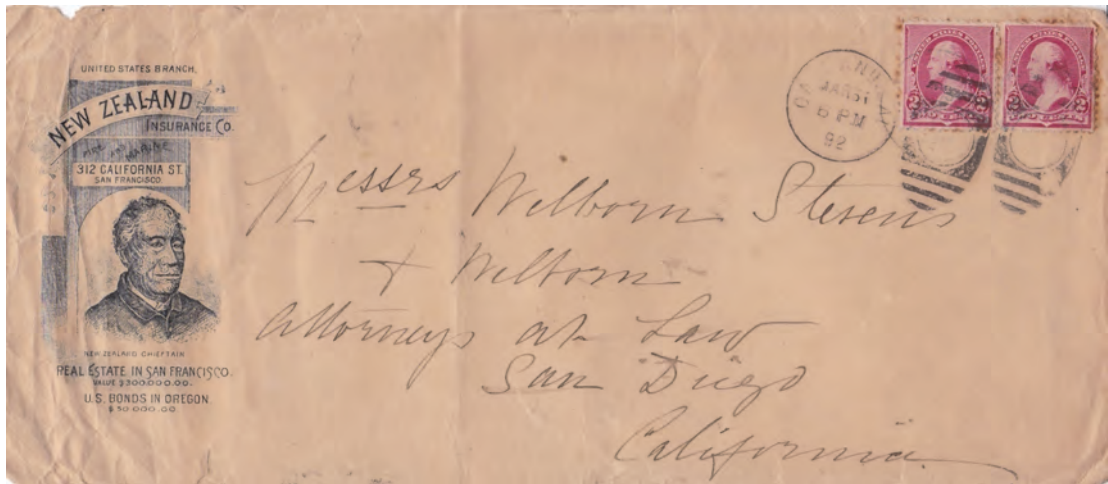 UNITED STATES BRANCH.
NEW ZEALAND
INSURANCE CO.
FIRE AND MARINE
312 CALIFORNIA ST.
SAN FRANCISCO.
NEW ZEALAND CHIEFTAIN
REAL ESTATE IN SAN FRANCISCO.
VALUE $300.000.00.
U.S. BONDS IN OREGON.
$50.000.00
6 PM
92
UNITED STATES POSTAGE
2 2
TWO CENTS
UNITED STATES POSTAGE
2 2
Messrs Wilborn Stevens
+ Wilborn
Attorneys at Law
San Diego
California